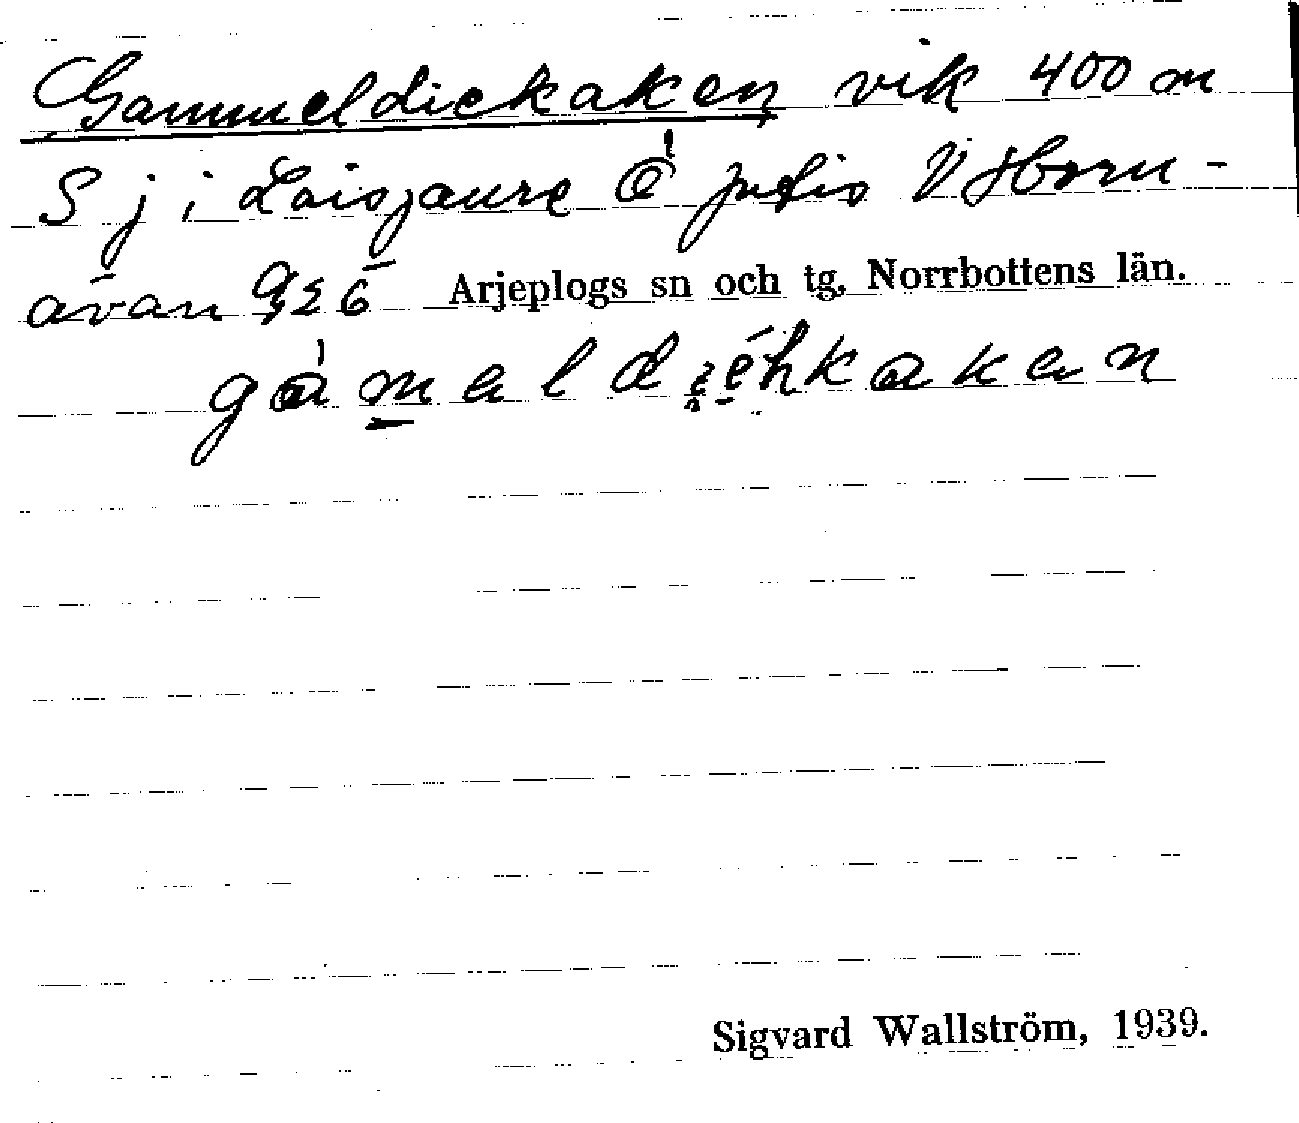 Gammeldiekaken vik 400 m
S j i Loisjaure Ö Jutis V Horn-
avan 926 Arjeplogs sn och tg, Norrbottens län.
Sigvard Wallström, 1939.